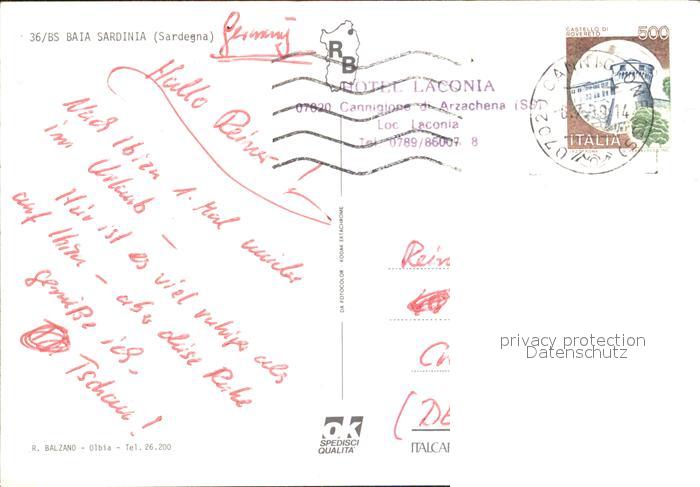 36/BS BAIA SARDINIA (Sardegna)
Germany
RB
CASTELLO DI ROVERETO
500
ITALIA
HOTEL LACONIA
07020 Cannigione di Arzachena (SS)
Loc. Laconia
Tel. 0789/86007 8
Hallo Reiner!
Nach Ibiza 1. Mal wieder
im Urlaub –
Hier ist es viel ruhiger als
auf Ibiza – aber diese Ruhe
genieße ich –
Tschau!
DA FOTOCOLOR KODAK EKTACHROME
Rein
(DE
privacy protection
Datenschutz
ok
SPEDISCI
QUALITA'
ITALCAR
R. BALZANO - Olbia - Tel. 26.200